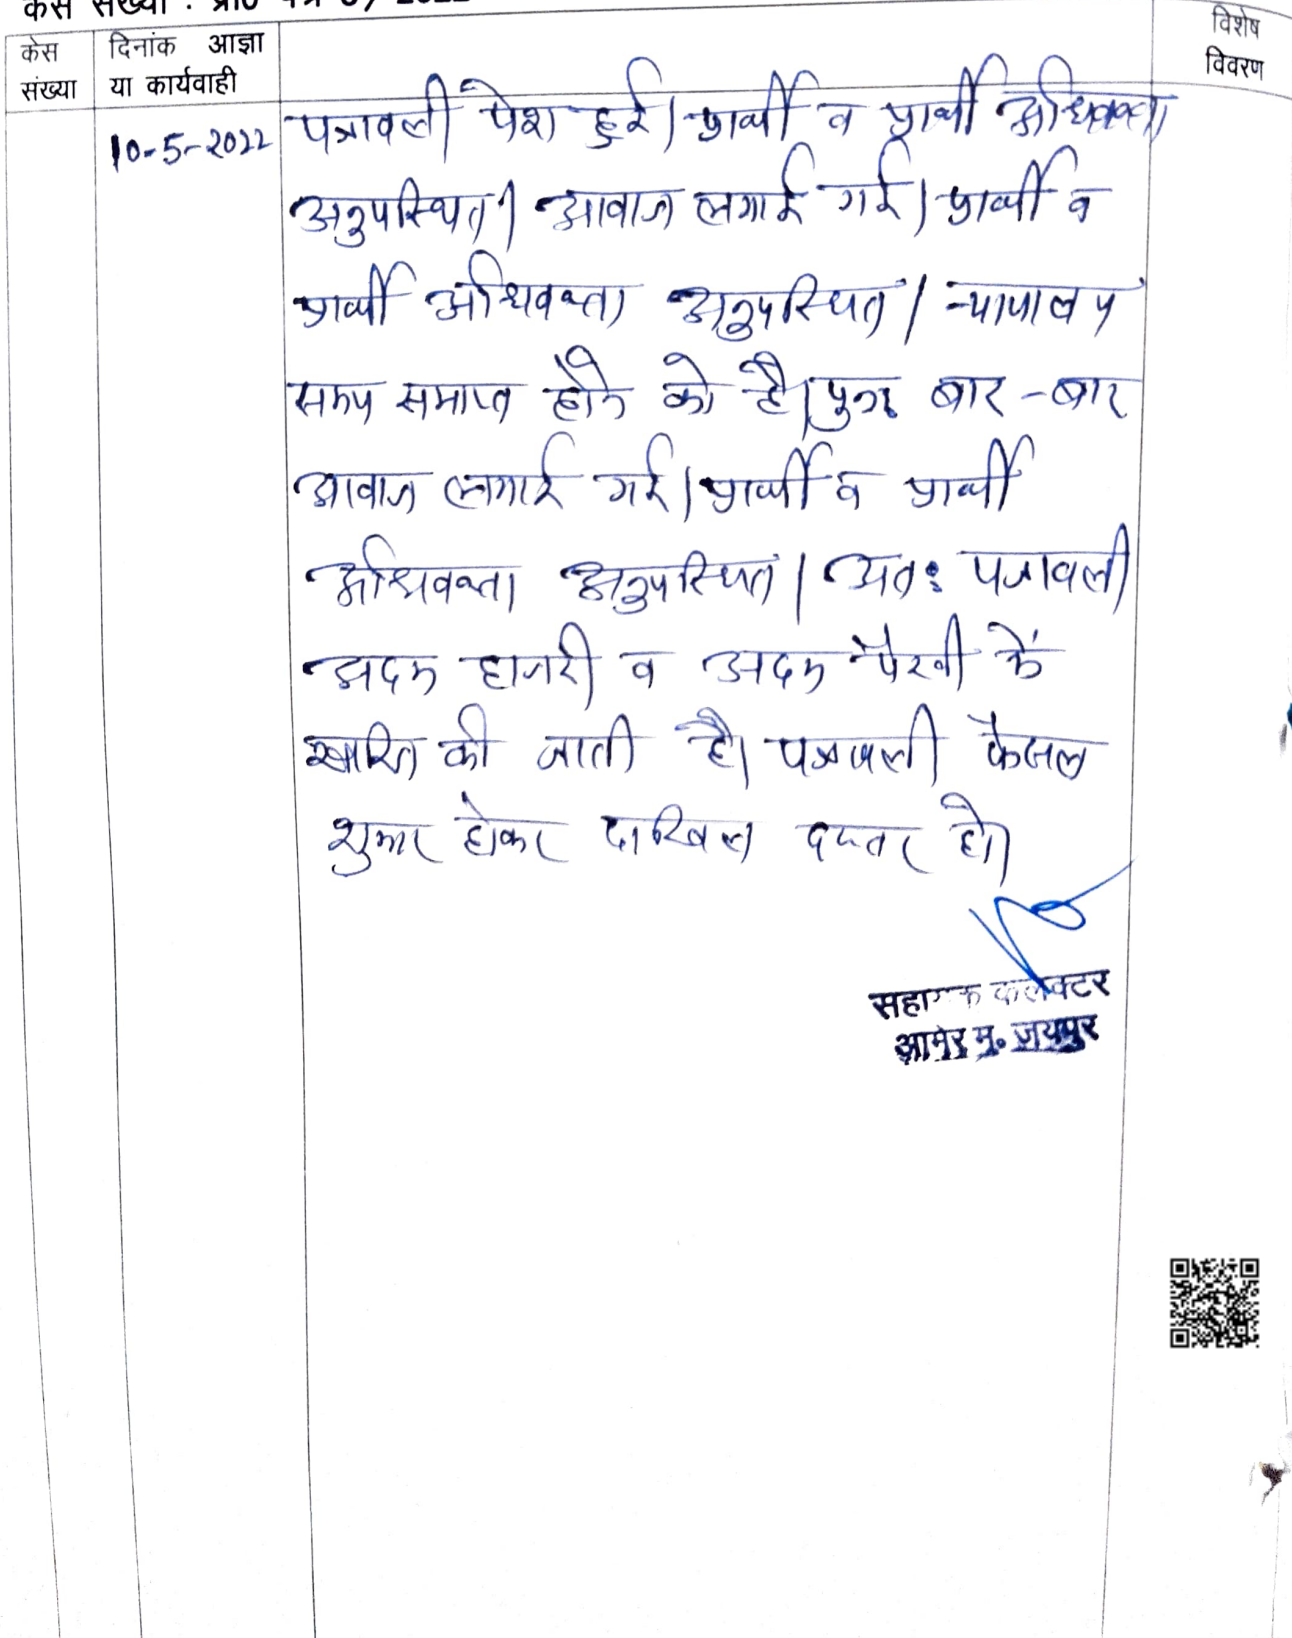 केस संख्या :
केस संख्या
दिनांक आज्ञा या कार्यवाही
विशेष विवरण
10-5-2022
पत्रावली पेश हुई। प्रार्थी व प्रार्थी अधिवक्ता
अनुपस्थित। आवाज लगाई गई। प्रार्थी व
प्रार्थी अधिवक्ता अनुपस्थित। न्यायालय
समय समाप्त होने को है। पुनः बार-बार
आवाज लगाई गई। प्रार्थी व प्रार्थी
अधिवक्ता अनुपस्थित। अतः पत्रावली
अदम हाजरी व अदम पैरवी में
खारिज की जाती है। पत्रावली फैसल
शुमार होकर दाखिल दफ्तर हो।
सहायक कलेक्टर
आमेर मु. जयपुर